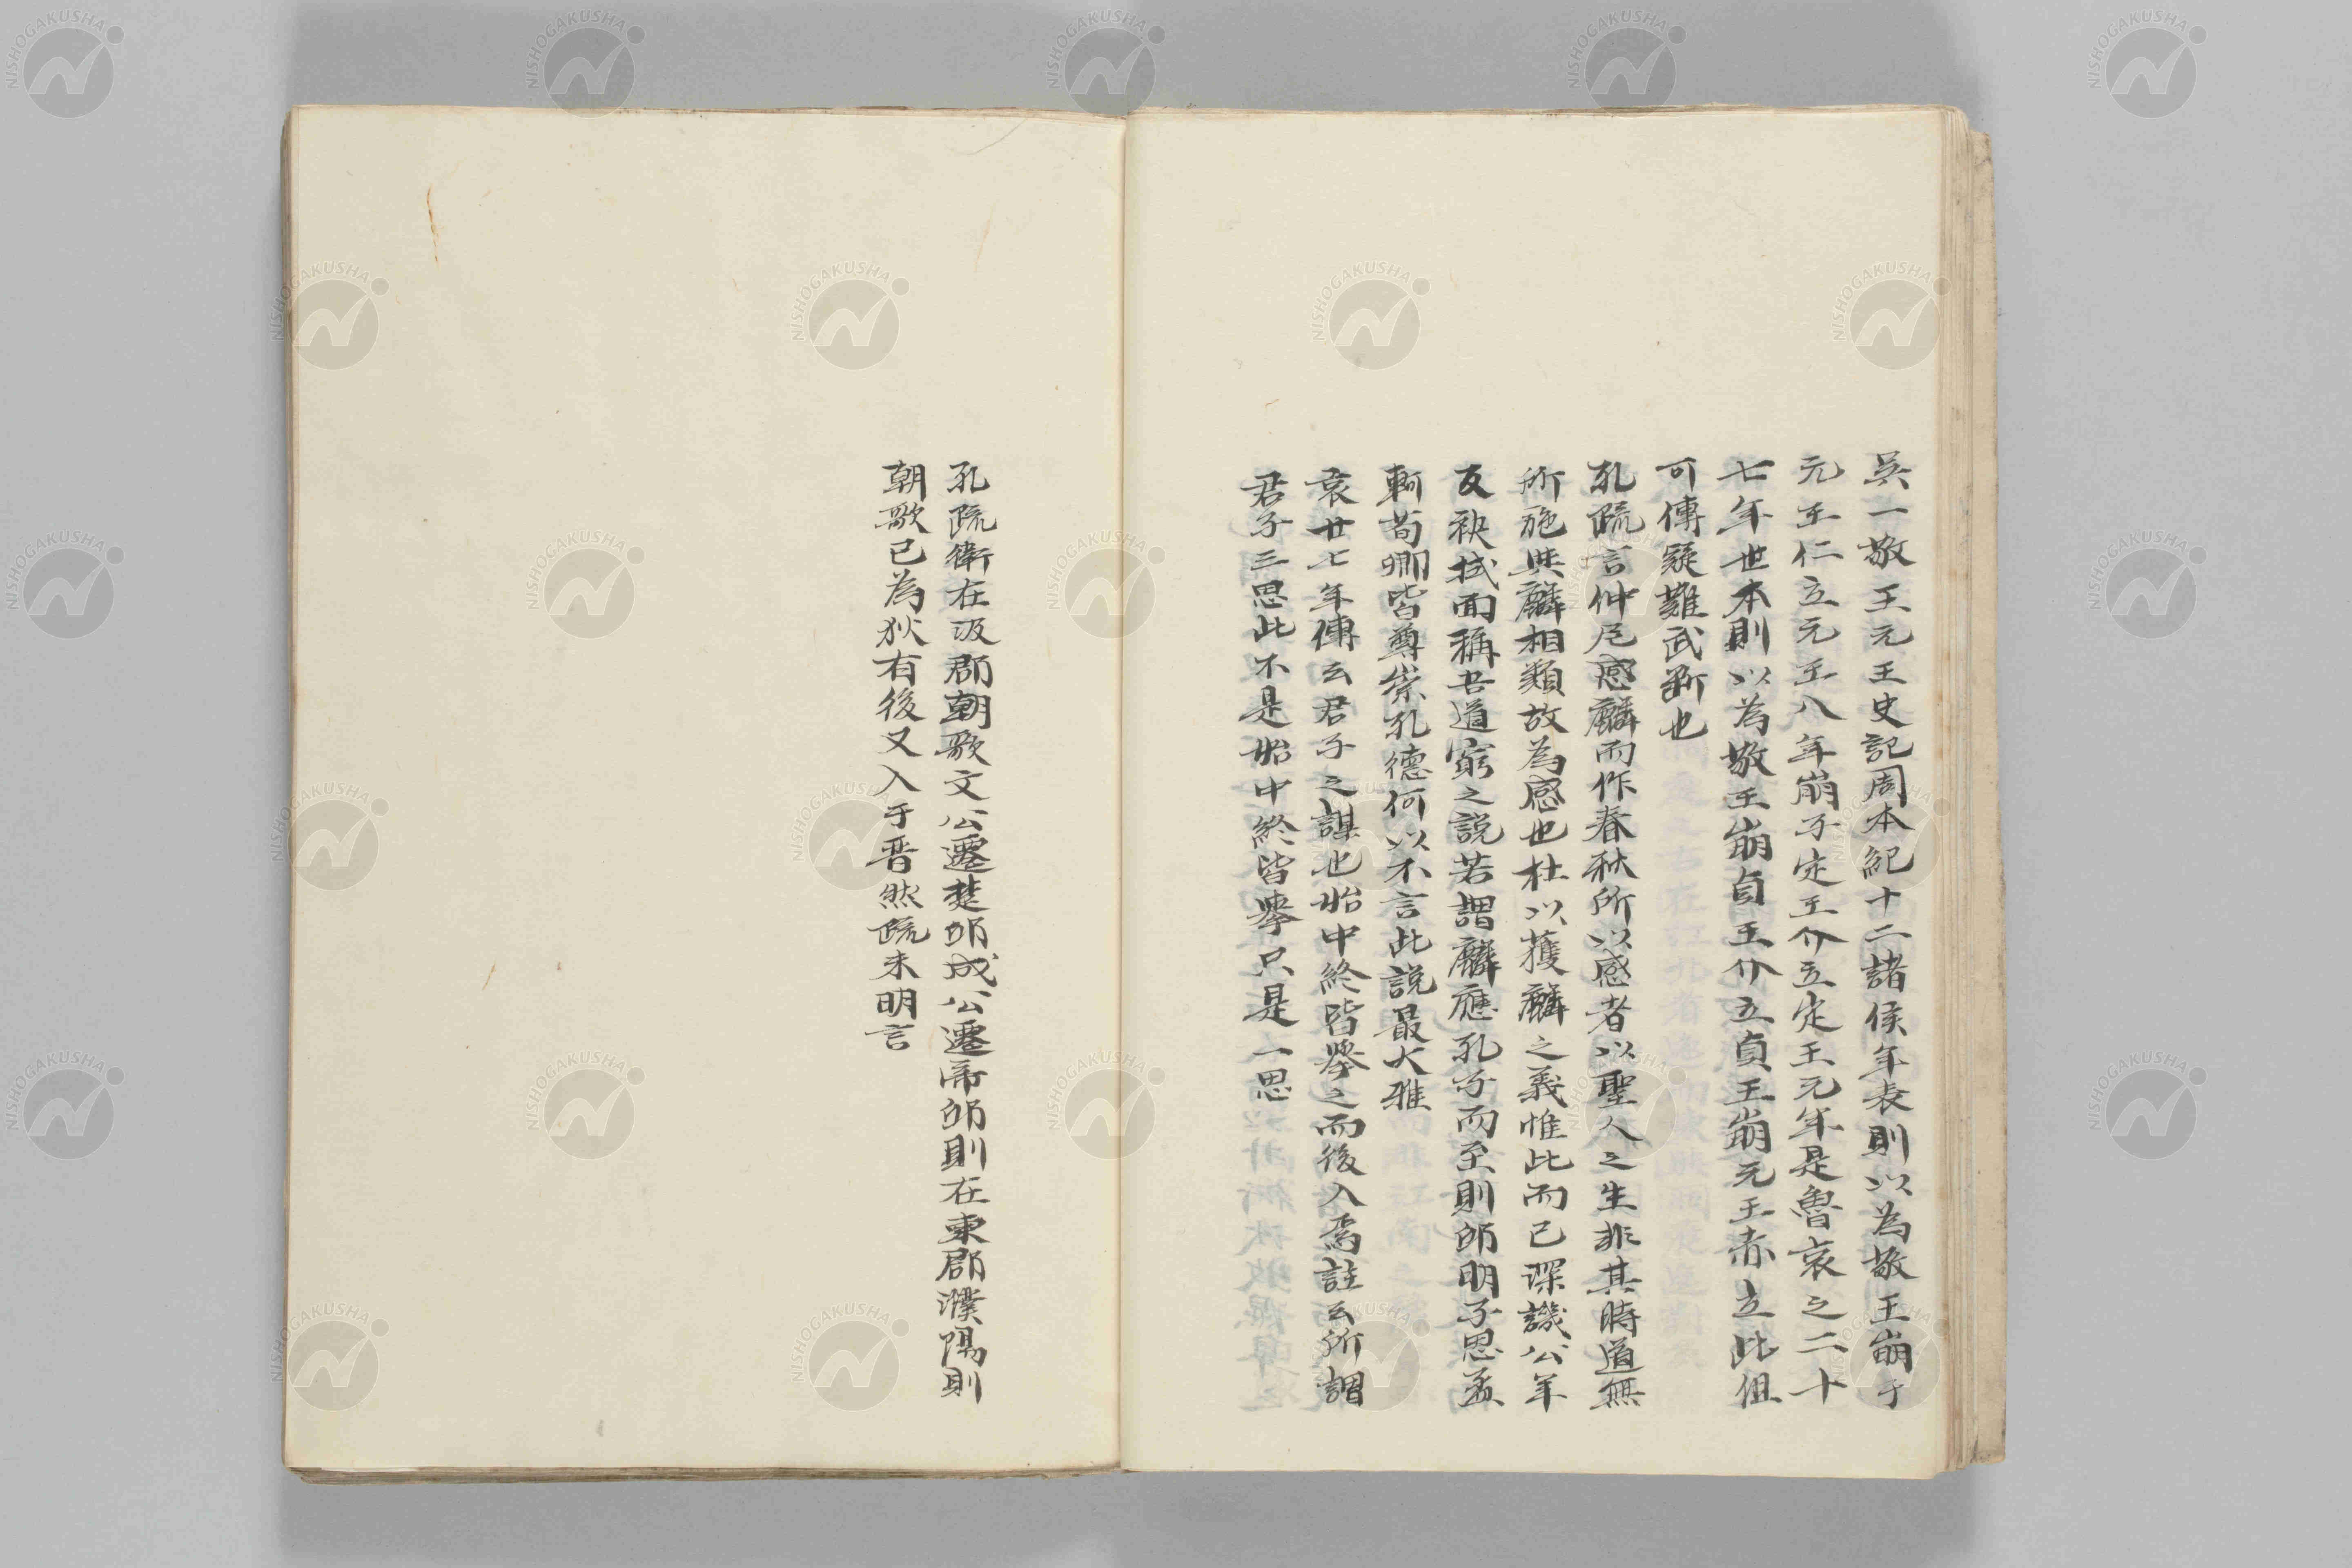 吳一敬王元王史記周本紀十二諸侯年表則以為敬王崩子
元王仁立元王八年崩子定王介立定王元年是魯哀之二十
七年世本則以為敬王崩貞王介立貞王崩元王赤立此但
可傳疑難武斷也
孔疏言仲尼感麟而作春秋所以感者以聖人之生非其時道無
所施與麟相類故為感也杜以獲麟之義惟此而已深譏公羊
反袂拭面稱吾道窮之說若謂麟應孔子而至則邱明子思孟
軻荀卿皆尊崇孔德何以不言此說最大雅
哀廿七年傳云君子之謀也始中終皆舉之而後入焉註云所謂
君子三思此不是始中終皆舉只是一思
孔疏衛在汲郡朝歌文公遷楚邱成公遷帝邱則在東郡濮陽則
朝歌已為狄有後又入于晉然疏未明言
NISHOGAKUSHA